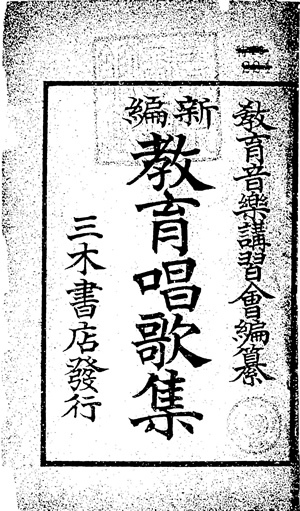 教育音樂講習會編纂
新編
教育唱歌集
三木書店發行